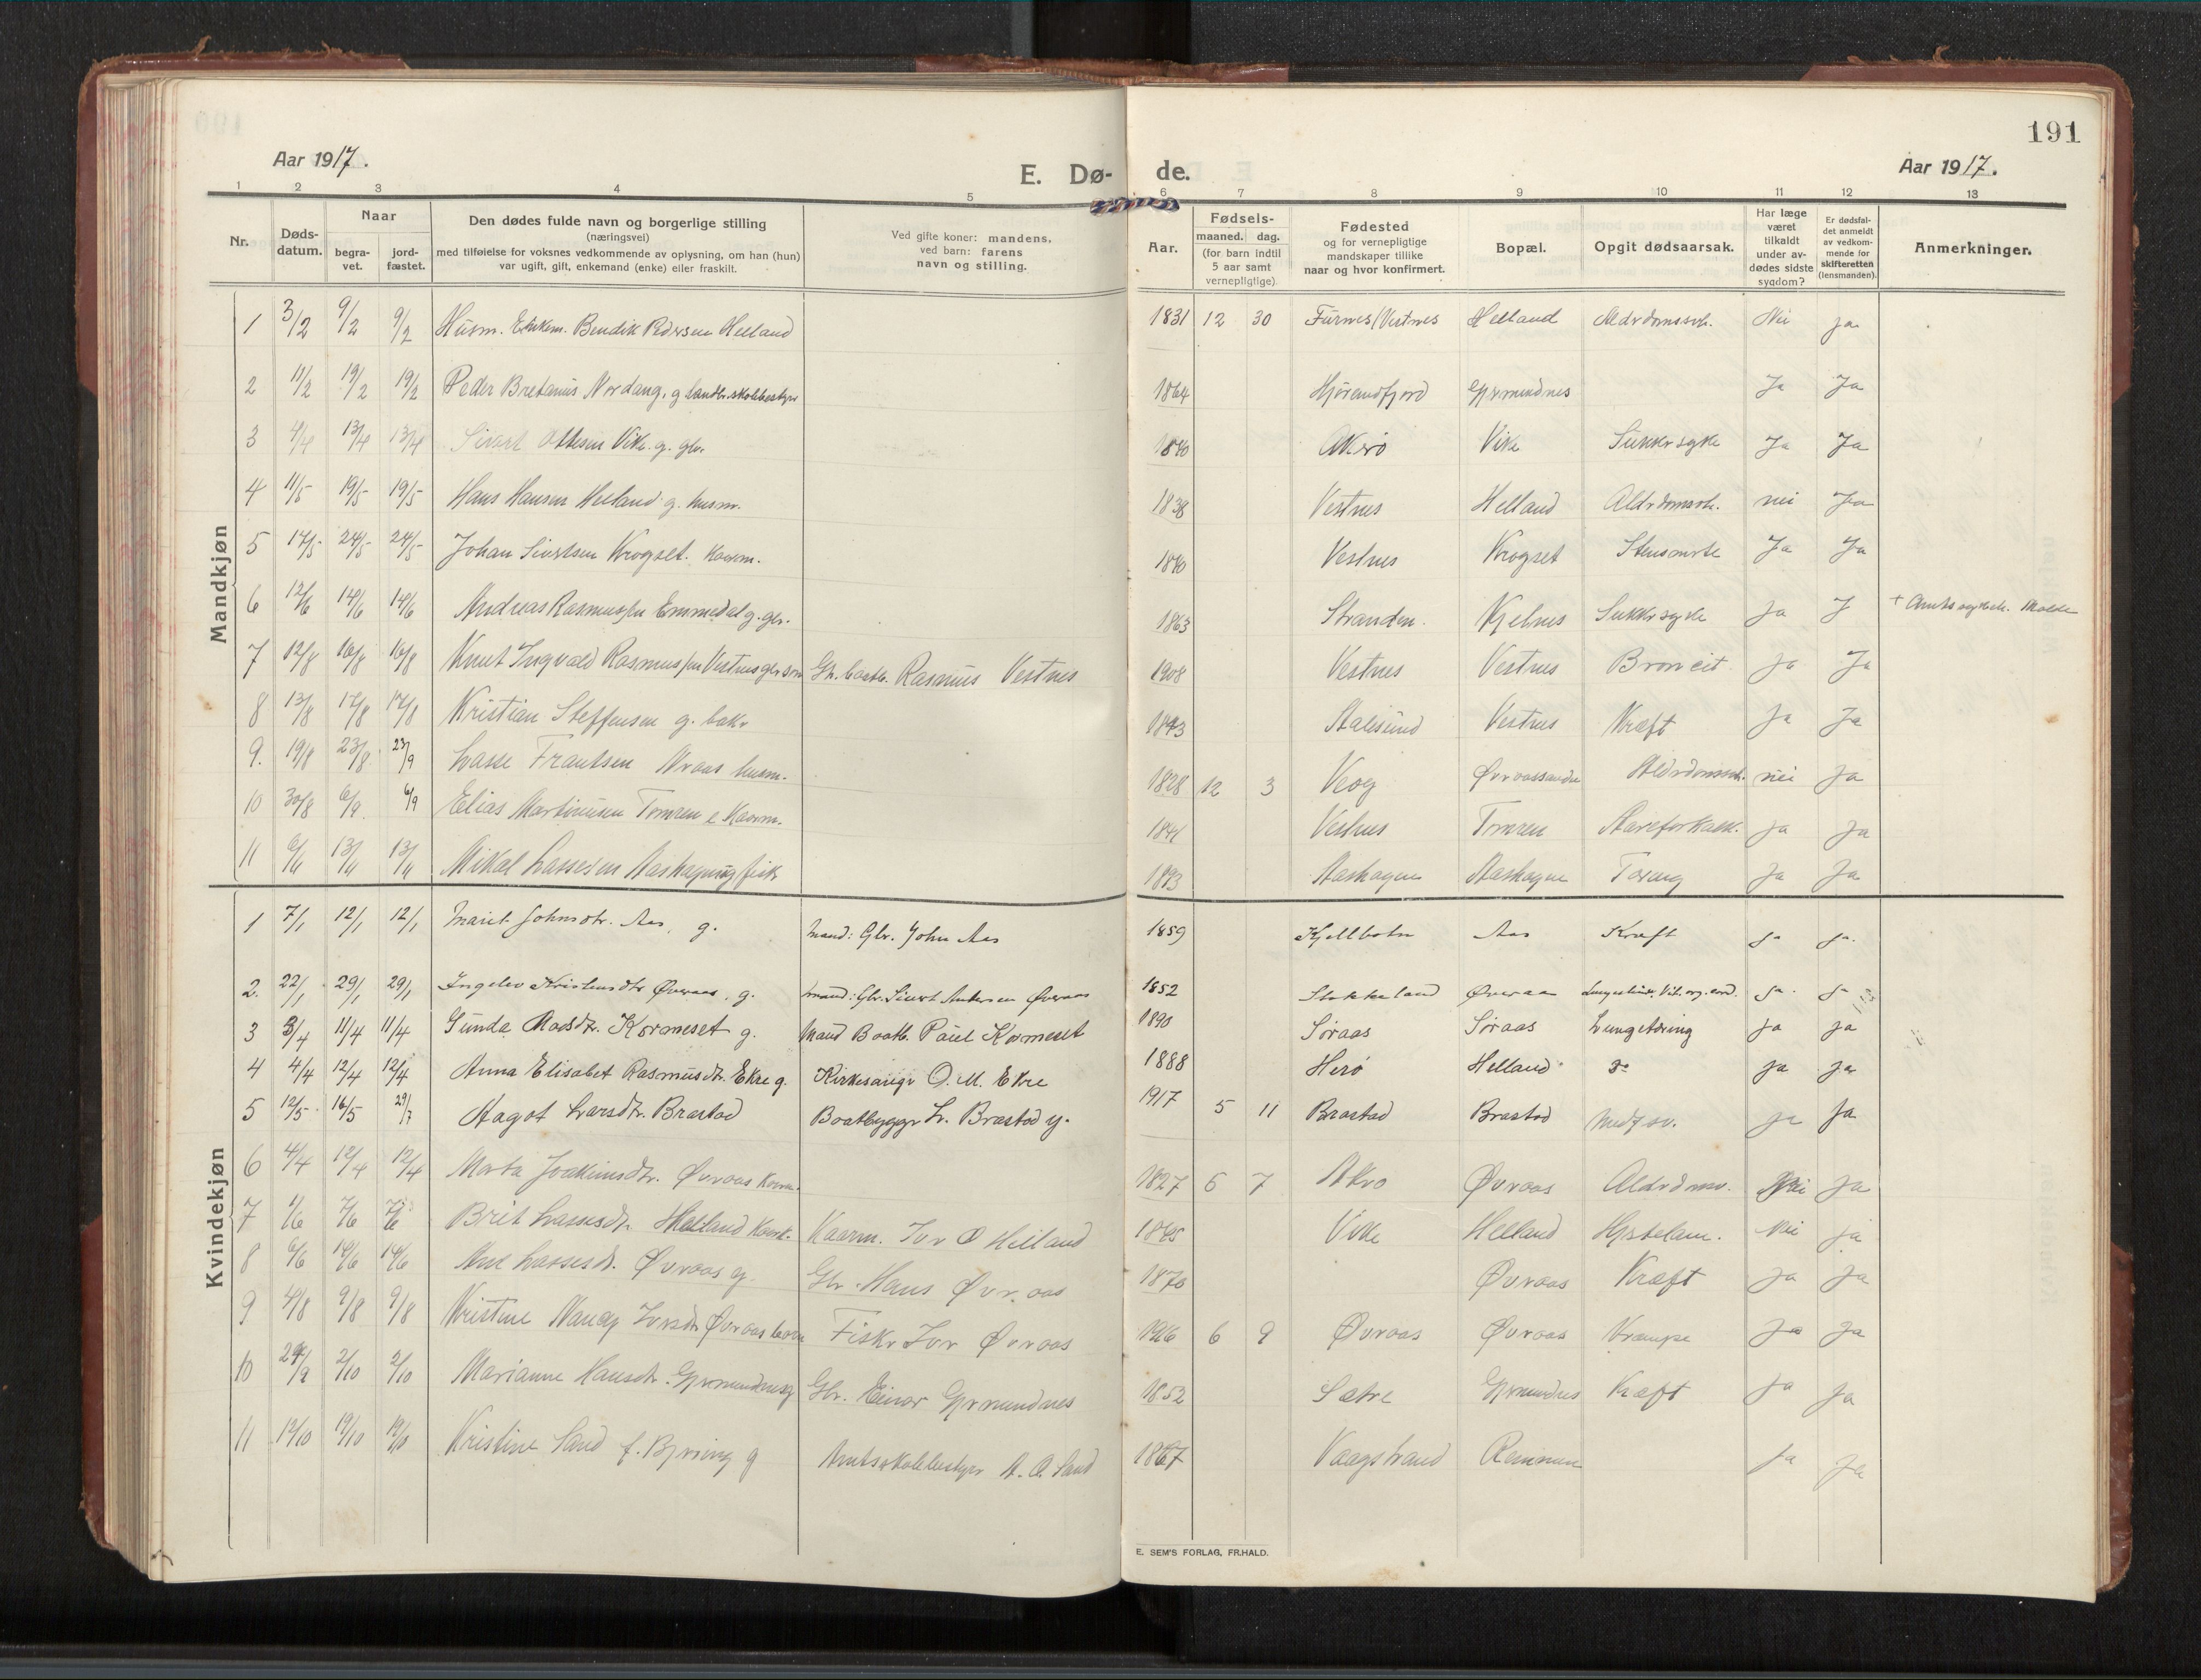 191
Aar 1917.
E. Dø- de.
Aar 1917.
1 2 3 4 5 6 7 8 9 10 11 12 13
Nr. Døds-datum. Naar begra-vet. jord-fæstet. Den dødes fulde navn og borgerlige stilling (næringsvei) med tilføielse for voksnes vedkommende av oplysning, om han (hun) var ugift, gift, enkemand (enke) eller fraskilt. Ved gifte koner: mandens, ved barn: farens navn og stilling. Aar. Fødsels- maaned. dag. (for barn indtil 5 aar samt vernepligtige). Fødested og for vernepligtige mandskaper tillike naar og hvor konfirmert. Bopæl. Opgit dødsaarsak. Har læge været tilkaldt under av-dødes sidste sygdom? Er dødsfal-det anmeldt av vedkom-mende for skifteretten (lensmanden). Anmerkninger.
Mandkjøn
1 3/2 9/2 9/2 Husm. Enkem. Bendik Pedersen Helland 1831 12 30 Furnes/Vestnes Helland Nei ja
2 11/2 19/2 19/2 Peder Bretanus Nordang, g landbr.skolebestyr 1864 Hjørendfjord Gjermundnes Ja Ja
3 4/4 13/4 13/4 Sivert Ottesen Vike. g. gbr. 1840 Akerø Vike Sukkersyke Ja Ja
4 11/5 19/5 19/5 Hans Hansen Helland g. husm. 1838 Vestnes Helland nei Ja
5 17/5 24/5 24/5 Johan Sivertsen Krogset. Kaarm. 1840 Vestnes Krogset Ja Ja
6 12/6 14/6 14/6 Andreas Rasmussen Emmedal g. gbr. 1863 Stranden. Kjelnes Sukkersyke Ja J + Amtssykeh. Molde
7 12/8 16/8 16/8 Knut Ingvald Rasmussen Vestnes Rasmus Vestnes 1908 Vestnes Vestnes Broncit ja Ja
8 13/8 17/8 17/8 Kristian Steffensen g. bak. Aalesund Vestnes Kræft Ja Ja
9. 19/8 23/8 23/9 Lasse Frantsen husm. 1828 12 3 Veøy nei Ja
10 30/8 6/9. 6/9 Elias Martinusen Tomren e Kaarm. 1841 Vestnes Tomren Aareforkalk. ja Ja
11 6/11 13/11 13/11 Mikal Lassesen Aashagen 1893 Aashagen Aashagen Tæring Ja Ja
Kvindekjøn
1 7/1 12/1 12/1 Marit Johnsdtr. Aas, g. Mand: Gbr. John Aas 1859 Kjellbotn Aas Kræft ja ja.
2. 22/1 29/1 29/1 Ingelev Kristensdtr Øveraas, g. Mand: Gbr. Sivert Andersen Øveraas 1852 Stokkeland Øveraas Ja. Ja
3 3/4 11/4 11/4 Gunda Madsdtr. Kormeset g. Mand Baatb. Paul Kormeset 1890 Søraas Søraas Lungetæring ja ja
4 4/4 12/4 12/4 Anna Elisabet Rasmusdtr. Ekre g. Kirkesanger O. M. Ekre 1888 Herø Helland do ja ja
5 12/5 16/5 29/7 Aagot Larsdtr. Brastad Baatbygger L. Brastad g. 1917 5 11 Brastad Brastad Medf. sv. ja Ja
6 4/4 12/4 12/4 Marta Joakimsdtr. Øveraas Kaarm. 1827 6 7 Akerø Øveraas Nei Ja
7 1/6 7/6 7/6 Brit Lassesdtr. Helland Kaark. Kaarm. Iver O Helland 1845 Vike Helland Hjertelam. Nei ja
8 6/6 14/6 14/6 Ane Lassesdtr. Øveraas g. Gbr. Hans Øveraas 1870 Øveraas Kræft Ja Ja
9 4/8 9/8 9/8 Kristine Nancy Iversdtr Øveraas barn Fisker Iver Øveraas 1916 6 9 Øveraas Øveraas Krampe Ja Ja
10 29/9 2/10 2/10 Marianne Hansdtr. Gjermundnes g Gbr. Einar Gjermundnes 1852 Sætre Gjermundnes Kræft Ja Ja
11 12/10 19/10 19/10 Kristine Sand f. Bjøring g Amtsskolebestyrer A. O. Sand 1867 Vaagstrand Remmem Ja Ja
E. SEM'S FORLAG, FR.HALD.